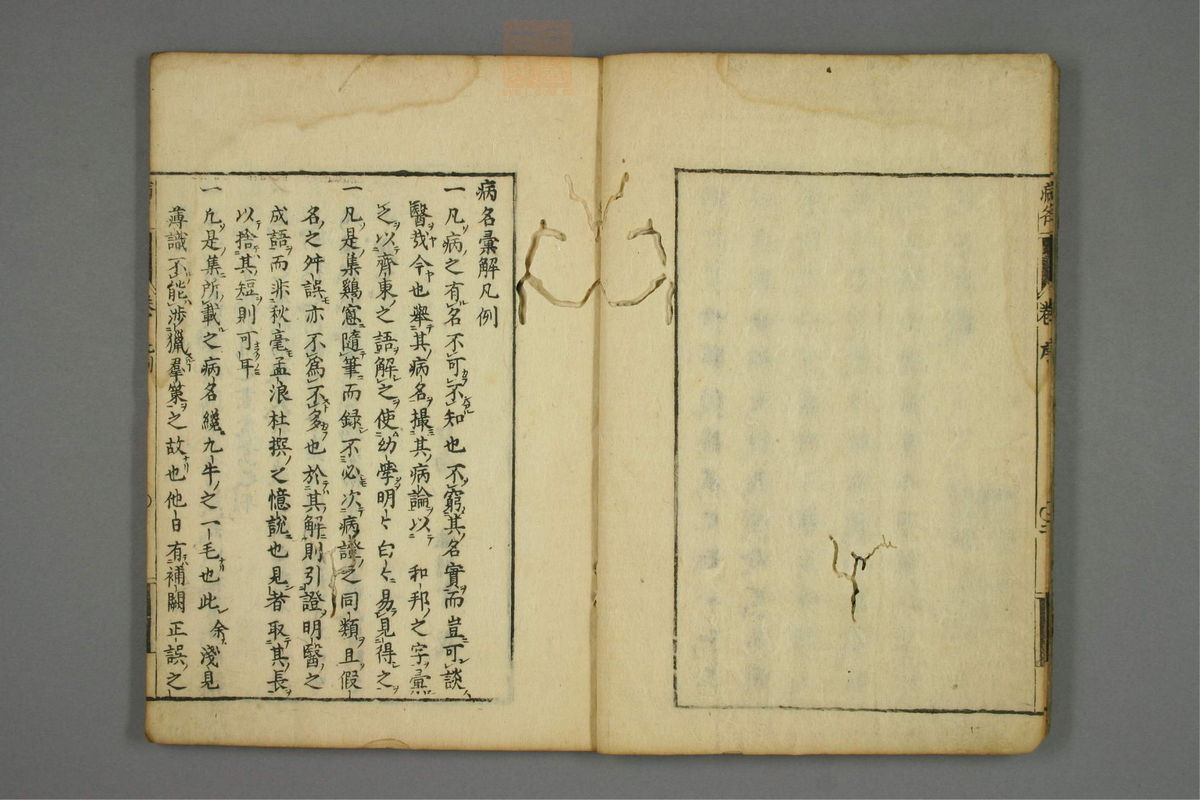 病名彙解凡例
一凡病之有名不可不知也不窮其名實而豈可談
醫哉今也舉其病名撮其病論以 和邦之字彙
之以齊東之語解之使幼學明〻白〻易見得之
一凡是集鷄窓隨筆而録不必次病證之同類且假
名之舛誤亦不爲不多也於其解則引證明醫之
成語而非秋毫孟浪杜撰之憶說也見者取其長
以捨其短則可耳
一凡是集所載之病名纔九牛之一毛也此 余淺見
薄識不能渉獵羣策之故也他日有補闕正誤之